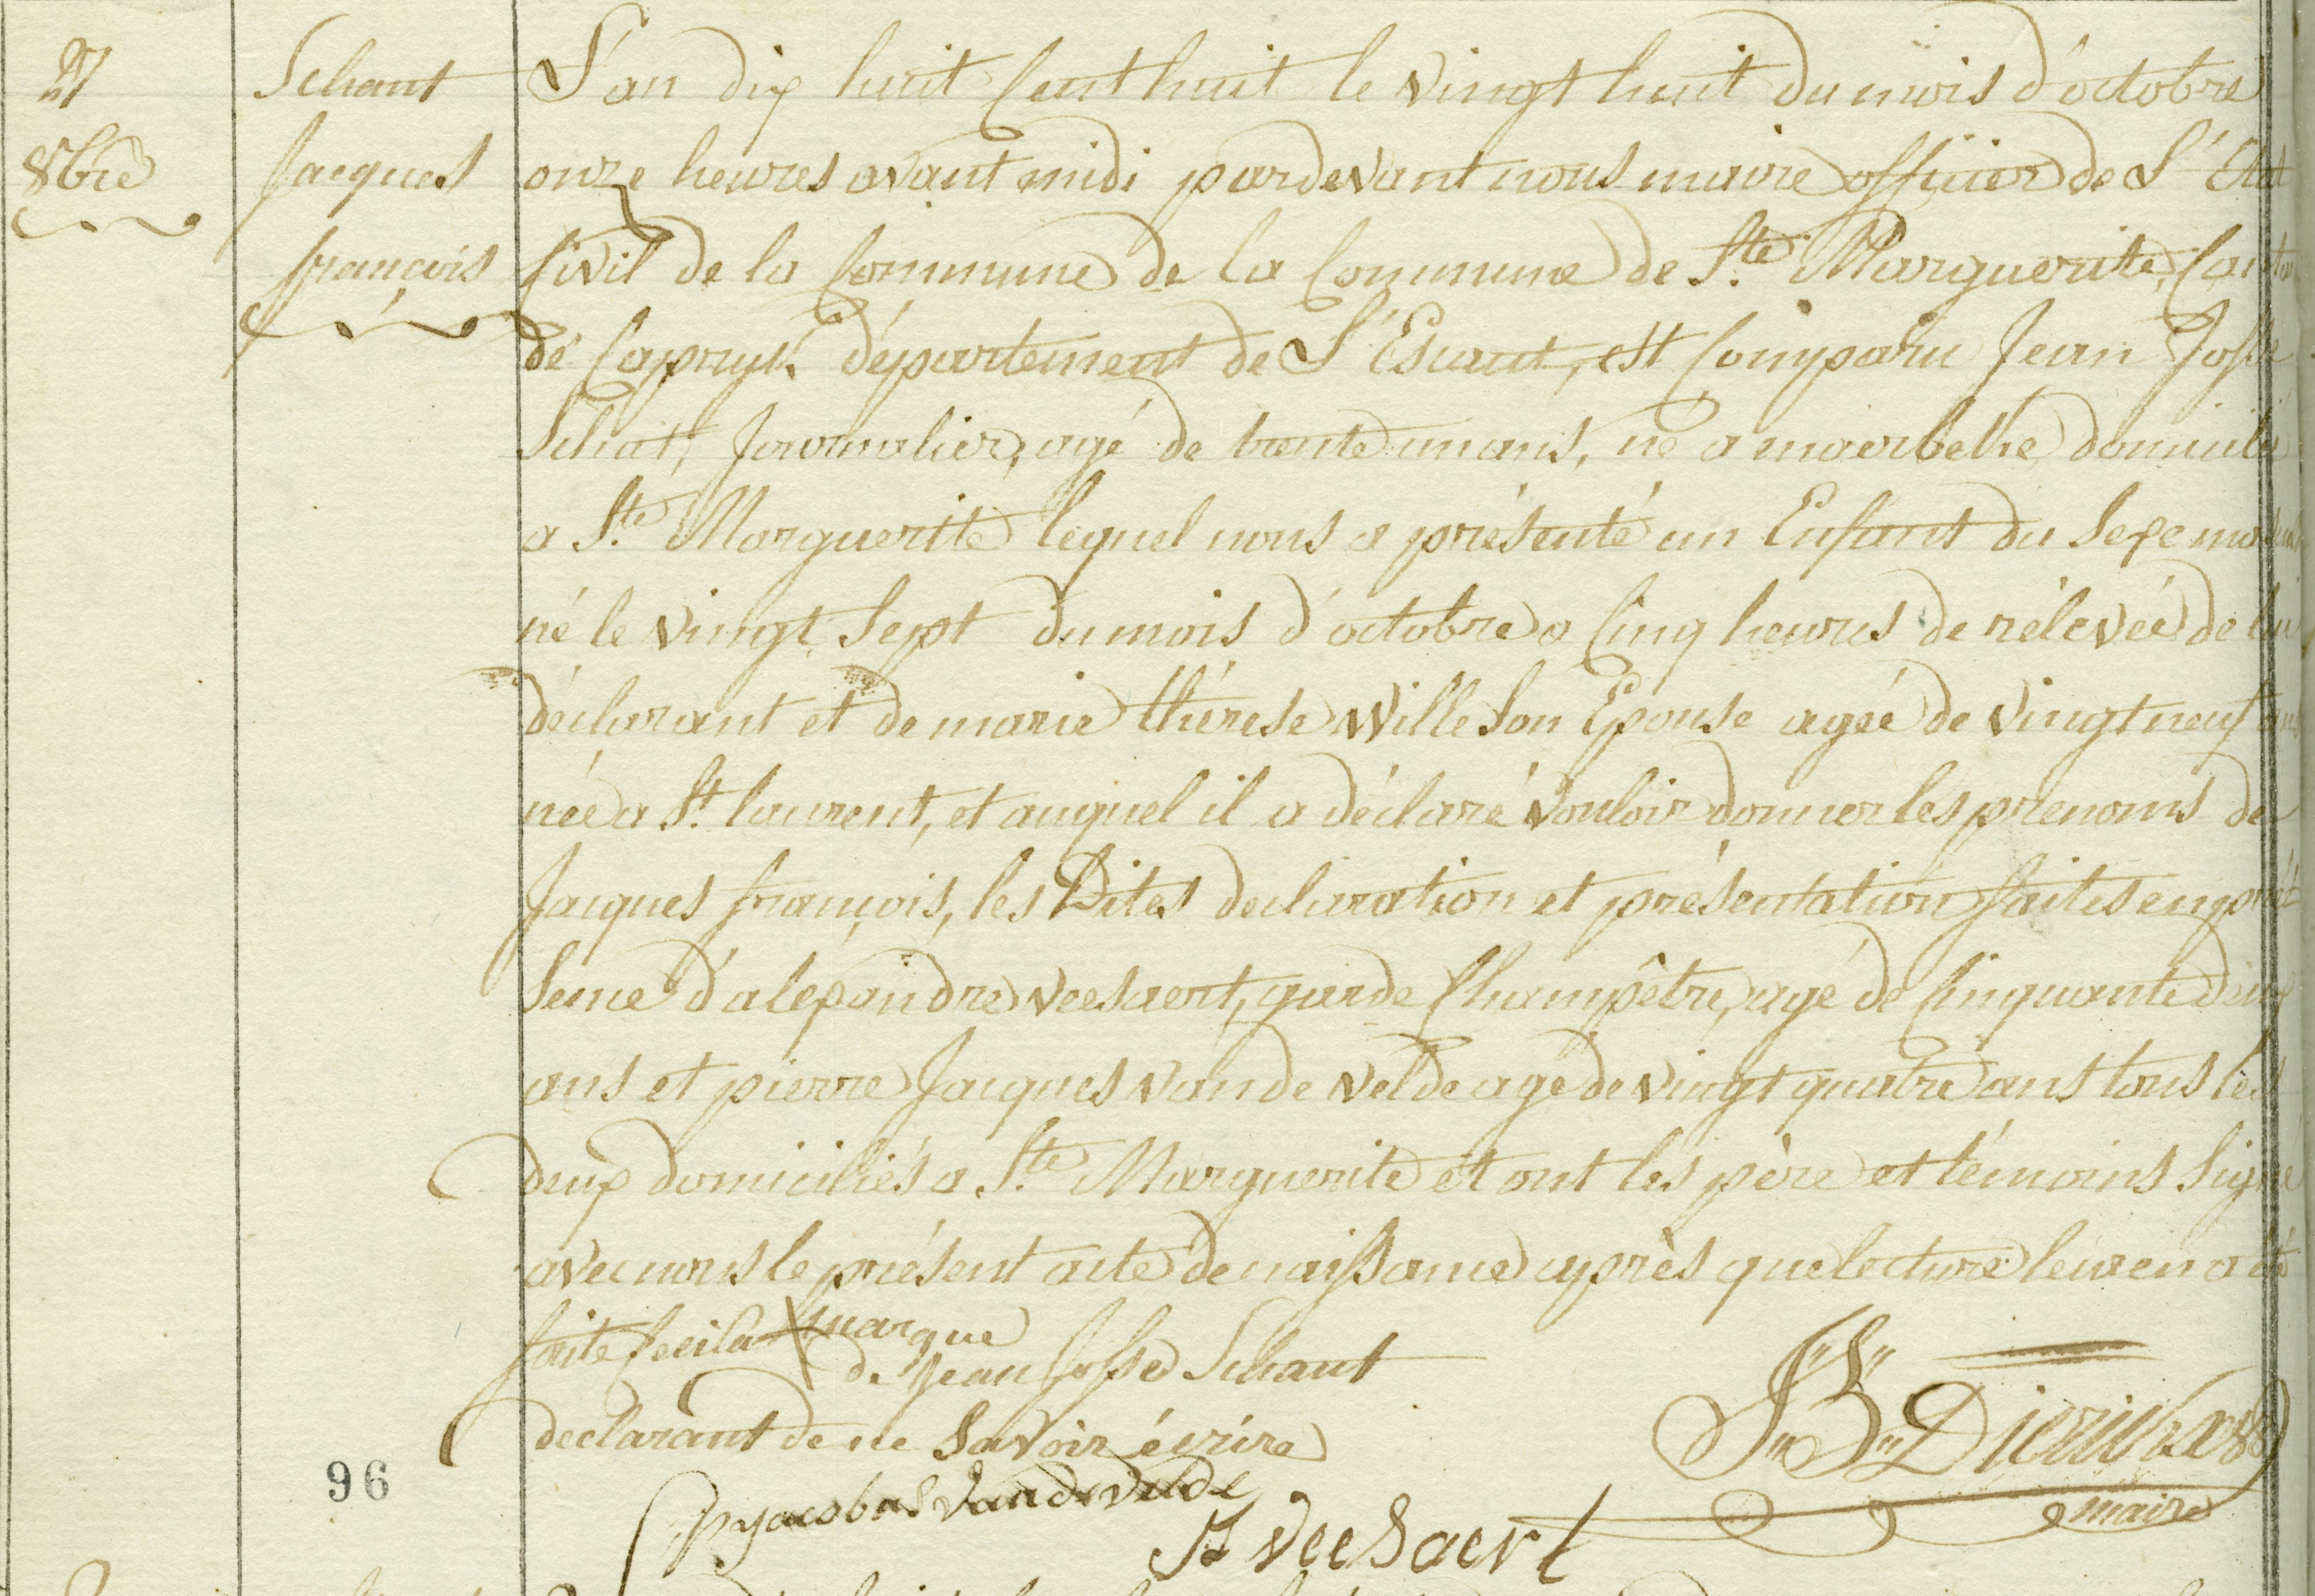 27
8bre
Schaut
Jacques
françois
L'an dix huit Cent huit le vingt huit du mois d'octobre
onze heures avant midi pardevant nous maire officier de L'Etat
Civil de la Commune de la Commune de Ste. Marguerite, Canton
de Capryk département de L'Escaut, est Comparu Jean Josse
Schaut, Journalier, agé de trente un ans, né a maerbeke domicilié
a Ste. Marguerite lequel nous a présenté un Enfant du Sexe masculin
né le vingt Sept du mois d'octobre a Cinq heures de rélevée de lui
déclarant et de marie thérese Wille Son Epouse agée de vingt neuf ans
née a St. laurent, et auquel il a déclaré vouloir donner les prenoms de
Jacques françois, les Dites declaration et présentation faites en pré
Sence d'alexandre veesaert, garde Champêtre, agé de Cinquante deux
ans et pierre Jacques van de velde agé de vingt quatre ans tous les
deux domiciliés a Ste. Marguerite et ont les père et témoins Signé
avec nous le présent acte de naissance après que lecture leur en a été
faite Ceci la X marque
de Jean Josse Schaut
declarant de ne Savoir écrire
J: B: Dierickx
maire
P Jacobus Vande Velde
A Veesaert
96